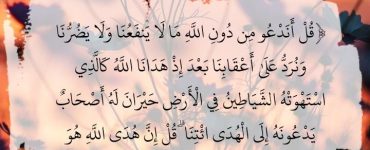 ﴿قُلْ أَنَدْعُو مِن دُونِ اللَّهِ مَا لَا يَنفَعُنَا وَلَا يَضُرُّنَا
وَنُرَدُّ عَلَىٰ أَعْقَابِنَا بَعْدَ إِذْ هَدَانَا اللَّهُ كَالَّذِي
اسْتَهْوَتْهُ الشَّيَاطِينُ فِي الْأَرْضِ حَيْرَانَ لَهُ أَصْحَابٌ
يَدْعُونَهُ إِلَى الْهُدَى ائْتِنَا ۗ قُلْ إِنَّ هُدَى اللَّهِ هُوَ